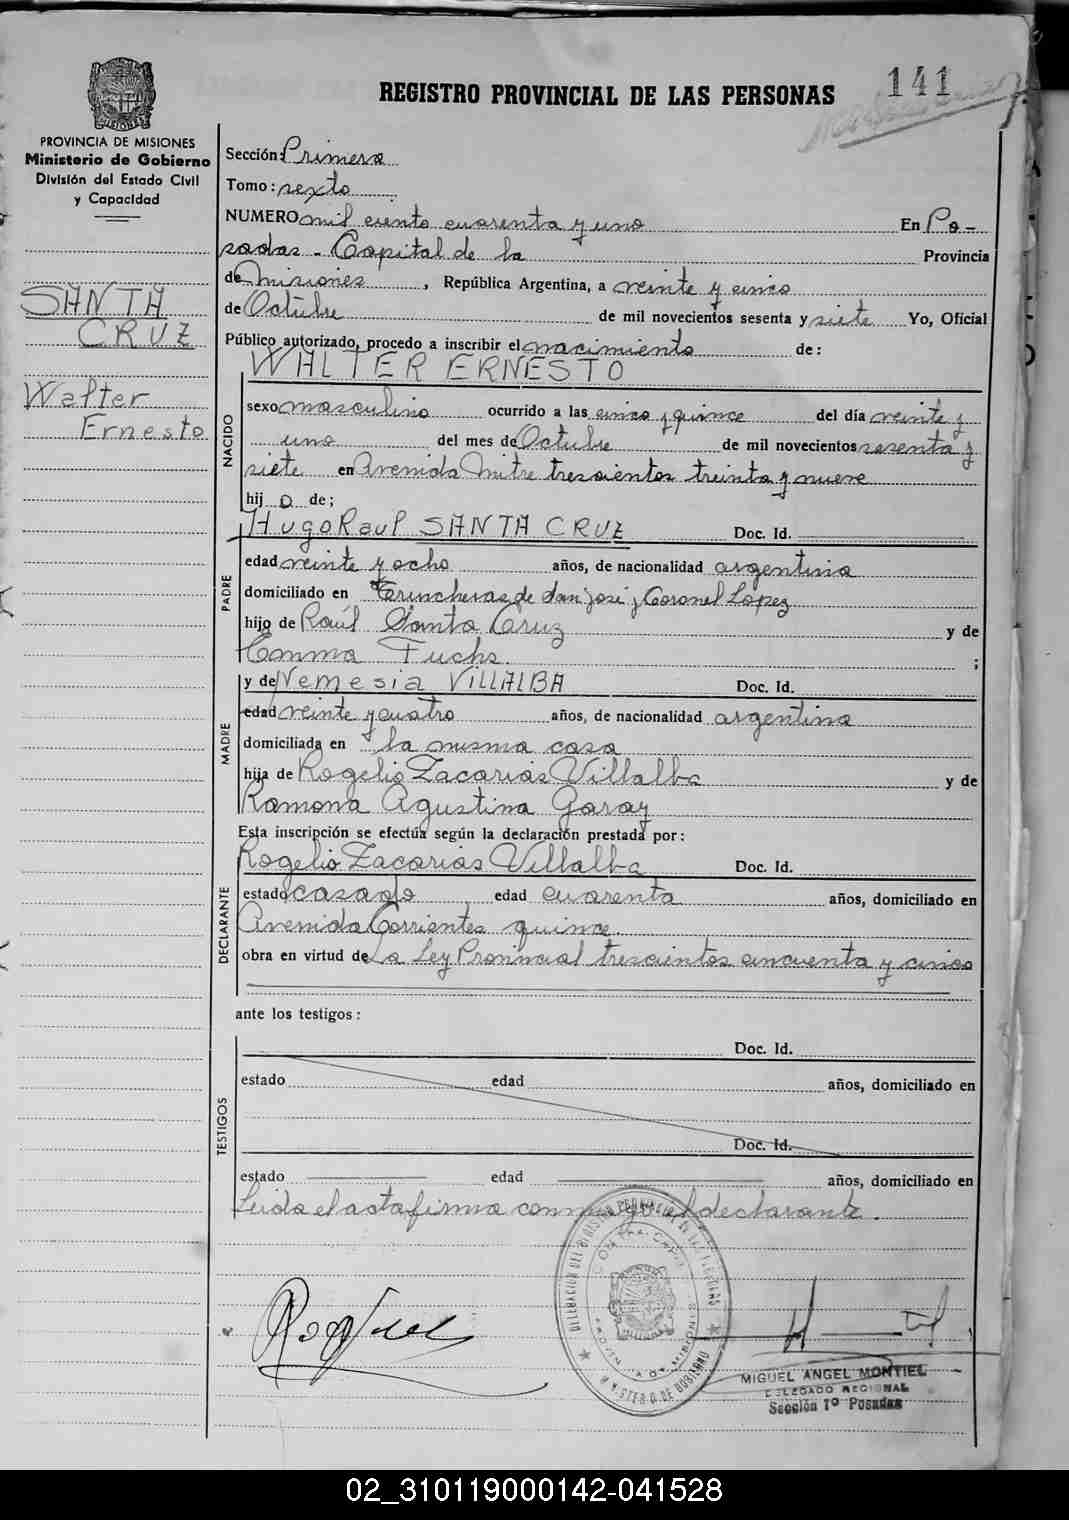 REGISTRO PROVINCIAL DE LAS PERSONAS
141
MISIONES
PROVINCIA DE MISIONES
Ministerio de Gobierno
División del Estado Civil
y Capacidad
SANTA
CRUZ
Walter
Ernesto
Sección: Primera
Tomo: sexto
NUMERO mil ciento cuarenta y uno En Po-
sadas - Capital de la Provincia
de Misiones, República Argentina, a veinte y cinco
de Octubre de mil novecientos sesenta y siete Yo, Oficial
Público autorizado, procedo a inscribir el nacimiento de:
WALTER ERNESTO
NACIDO
sexo masculino ocurrido a las cinco y quince del día veinte y
uno del mes de Octubre de mil novecientos sesenta y
siete en Avenida Mitre trescientos treinta y nueve
hijo de;
Hugo Raul SANTA CRUZ Doc. Id.
PADRE
edad veinte y ocho años, de nacionalidad argentina
domiciliado en Trincheras de San José y Coronel López
hijo de Raúl Santa Cruz y de
Emma Fuchs ;
y de Nemesia VILLALBA Doc. Id.
MADRE
edad veinte y cuatro años, de nacionalidad argentina
domiciliada en la misma casa
hija de Rogelio Zacarías Villalba y de
Ramona Agustina Garay
Esta inscripción se efectúa según la declaración prestada por:
Rogelio Zacarías Villalba Doc. Id.
DECLARANTE
estado casado edad cuarenta años, domiciliado en
Avenida Corrientes quince.
obra en virtud de La Ley Provincial trescientos cincuenta y cinco
ante los testigos:
Doc. Id.
TESTIGOS
estado edad años, domiciliado en
Doc. Id.
estado edad años, domiciliado en
Leida el acta firma conmigo el declarante.
DELEGACION DEL REGISTRO PROVINCIAL DE LAS PERSONAS
MINISTERIO DE GOBIERNO
MIGUEL ANGEL MONTIEL
DELEGADO REGIONAL
Sección 1º Posadas
02_310119000142-041528